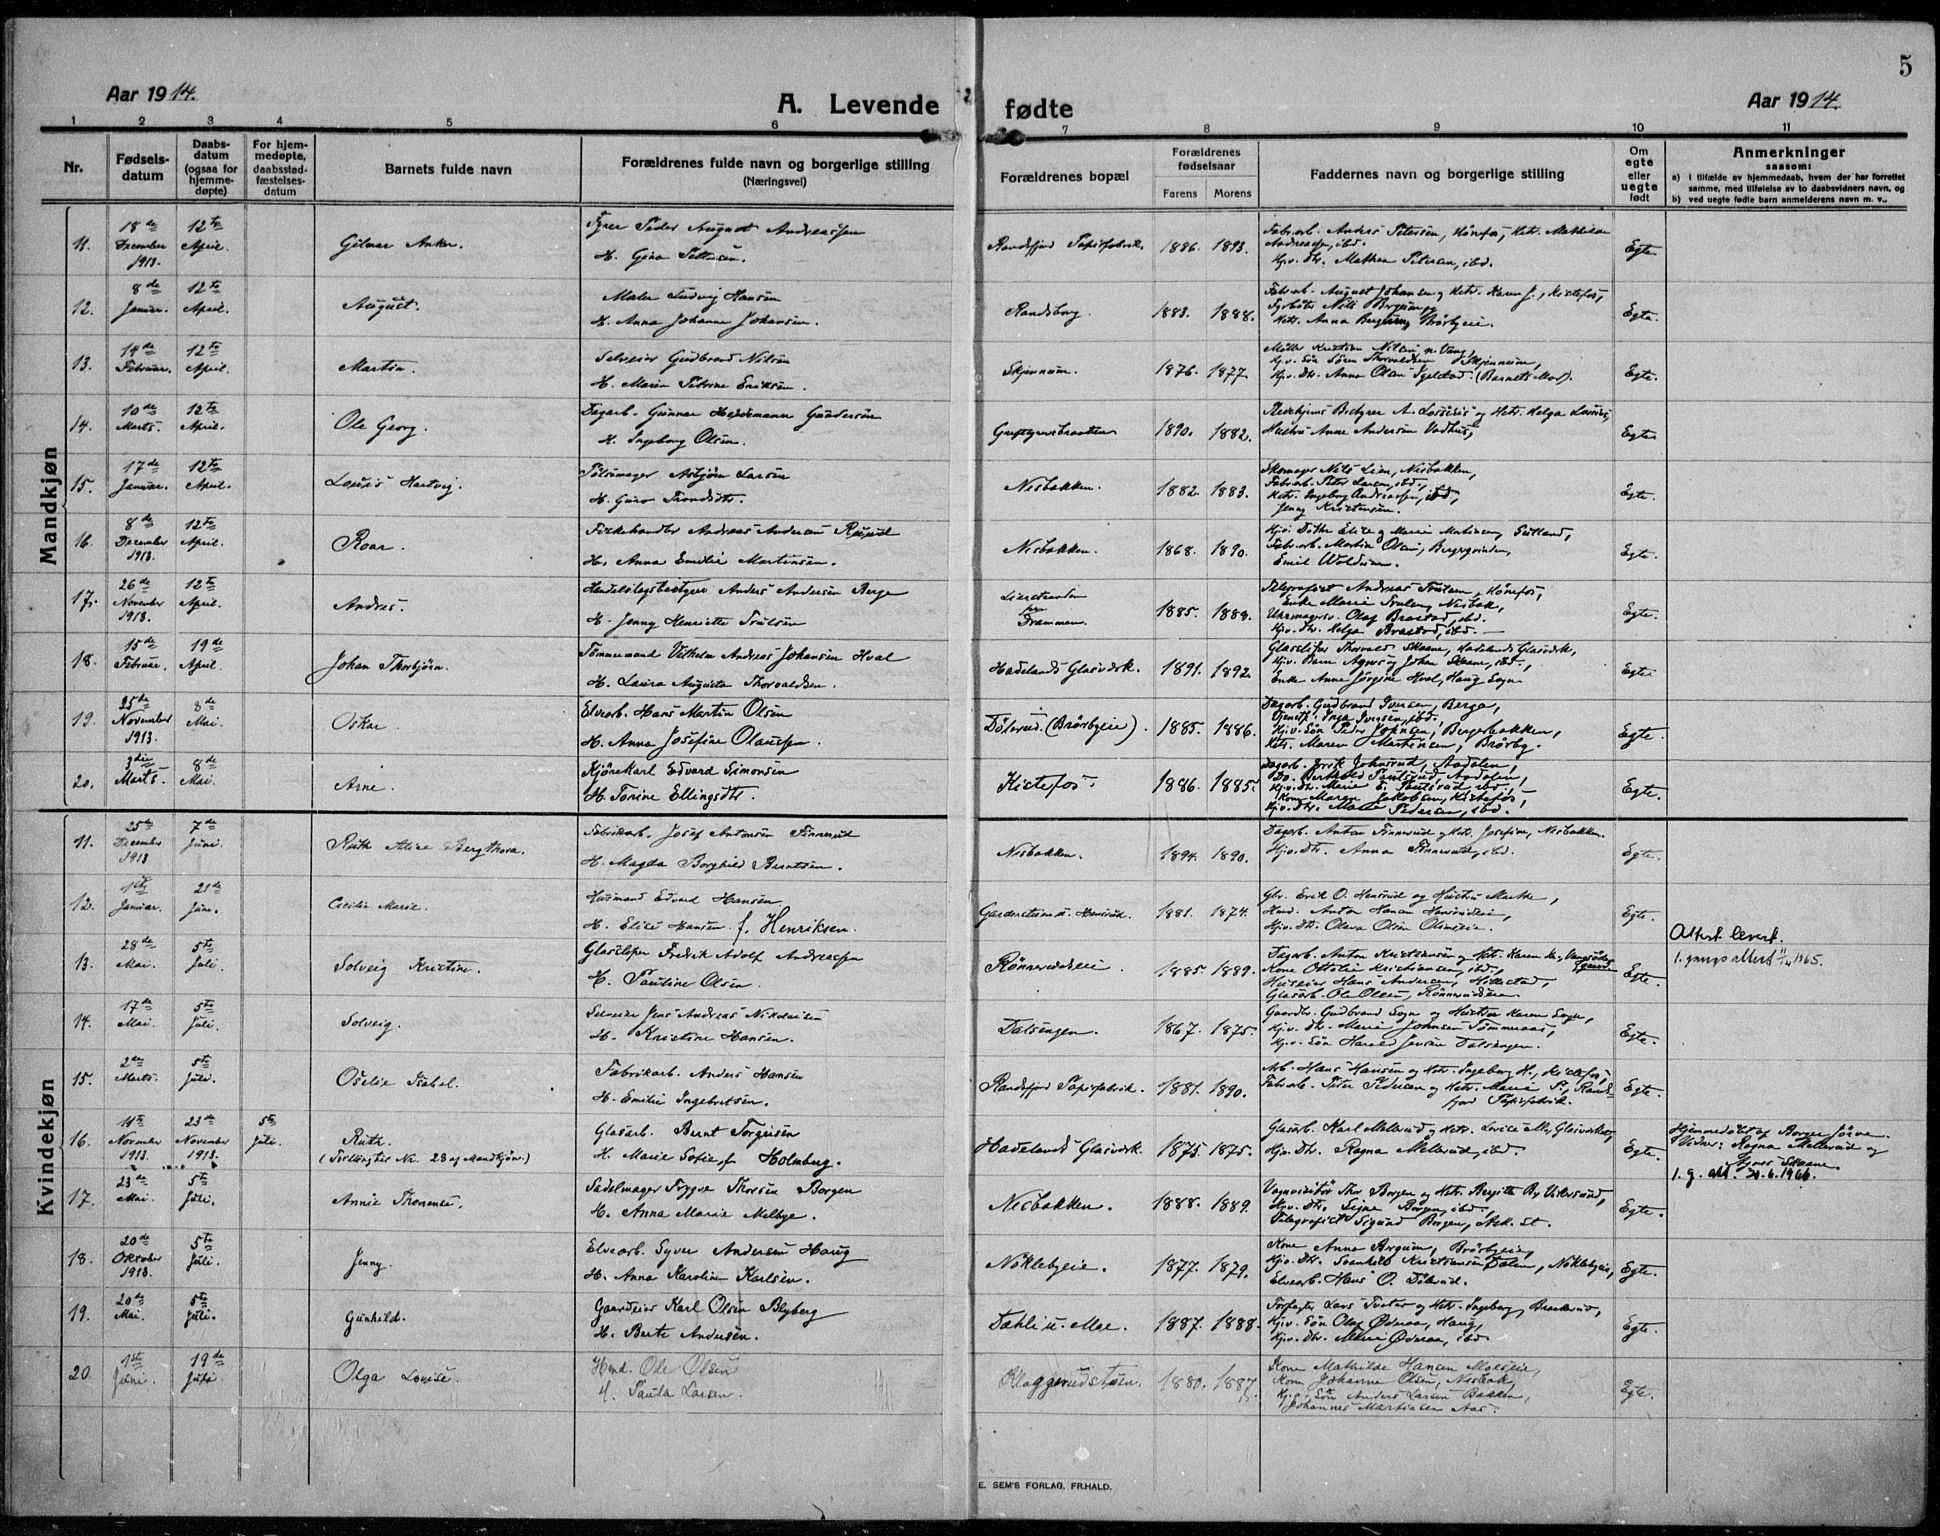 5
Aar 1914.
A. Levende fødte
Aar 1914.
1 2 3 4 5 6 7 8 9 10 11
Nr.
Fødsels-
datum
Daabs-
datum
(ogsaa for
hjemme-
døpte)
For hjem-
medøpte,
daabsstad-
fæstelses-
datum
Barnets fulde navn
Forældrenes fulde navn og borgerlige stilling
(Næringsvei)
Forældrenes bopæl
Forældrenes
fødselsaar
Farens Morens
Faddernes navn og borgerlige stilling
Om
egte
eller
uegte
født
Anmerkninger
saasom:
a) i tilfælde av hjemmedaab, hvem der har forrettet
samme, med tilføielse av to daabsvidners navn, og
b) ved uegte fødte barn anmelderens navn m. v..
Mandkjøn
11. 18de December 1913. 12te April. Gilmar Anker.
Fyrer Peder August Andreassen
H. Gina Pettersen.
Randsfjord Papirfabrik. 1886. 1893.
Fabrarb. Anders Petersen, Hønefos, Hstr. Mathilde
Andreassen, ibd.
Kjv. Dtr. Mathea Petersen, ibd.
Egte.
12. 8de Januar. 12te April. August.
Maler Ludvig Hansen
H. Anna Johanne Johansen.
Randsborg. 1883. 1888.
Fabrarb. August Johansen og Hstr. Karen J., Kistefos,
Fyrbøter Nils Bergum og
Hstr. Anna Bergum, Brørbyeie.
Egte.
13. 14de Februar. 12te April. Martin.
Selveier Gudbrand Nilsen
H. Maria Petrine Eriksen.
Skjennum. 1876. 1877.
Møller Kristian Nilsen n. Vang,
Kjv. Søn Søren Thorvaldsen Skjennum,
Kjv. Dtr. Anna Olsen (Barnets Mor).
Egte.
14. 10de Marts. 12te April. Ole Georg.
Dagarb. Gunnar Heddemann Gundersen
H. Ingeborg Olsen.
1890. 1882.
Hustru Anne Andersen Vadhus,
Egte
15. 17de Januar. 12te April. Louis Hartvig.
Pølsemager Asbjørn Larsen
H. Gina Trondsdtr.
Nesbakken. 1882. 1883.
Skomager Nils Lien, Nesbakken,
Fabrarb. Peter Larsen, ibd.,
Hstr. Ingeborg Andreassen, ibd,
Jenny Kristensen.
Egte.
16. 8de December 1913. 12te April. Roar.
Fiskehandler Andreas Andersen
H. Anna Emilie Martinsen.
Nesbakken. 1868. 1890.
Fabrarb. Martin Olsen,
Emil Woldum.
Egte.
17. 26de November 1913. 12te April. Andrés.
Handelslagsbestyrer Anders Andersen Berge
H. Jenny Henriette Trulsen
Lierstranden
pr.
Drammen. 1885. 1884.
Telegrafist Andreas Trulsen, Hønefos,
Enke Marie Trulsen, Nesbak,
Uhrmagersv. Olaf Brastad, ibd.
Kjv. Dtr. Helga Brastad, ibd.
Egte.
18. 15de Februar. 19de April. Johan Thorbjørn.
Tømmermand Vilhelm Andreas Johansen Hval
H. Laura Augusta Thorvaldsen.
Hadelands Glasverk. 1891. 1892.
Glassliber Thorvald Skaane, Hadelands Glasverk,
Kjv. Barn Agnes og Johan Skaane, ibd.,
Enke Anne Jørgine Hval, Haug Sogn
Egte.
19. 25de November 1913. 8de Mai. Oskar.
Elvearb. Hans Martin Olsen
H. Anna Josefine Olaussen.
Dølerud (Brørbyeie). 1885. 1886.
Dagarb. Gudbrand Iversen, Berga,
Tjenstp. Inga Iversen, ibd.,
Kjv. Søn Peder Johnsen, Bergerbakken,
Hstr. Maren Martinsen, Brørby.
Egte.
20. 3die Marts. 8de Mai. Arne.
Kjørekarl Edvard Simonsen
H. Tonine Ellingsdtr.
Kistefos. 1886. 1885.
Dagarb. Erik Johnsrud, Aadalen,
Do. Berthold Paulsrud, Aadalen,
Kjv. Dtr. Marie E. Paulsrud ibd.,
Kone Maren Jakobsen, Kistefos,
Kjv. Dtr. Marie Pedersen, ibd.
Egte.
Kvindekjøn
11. 25de December 1913 7de Juni. Ruth Alice Bergthora.
Fabrikarb. Josef Antonsen Finnerud
H. Magda Borghild Berntsen.
Nesbakken. 1894. 1890.
Dagarb. Anton Finnerud og Hstr. Josefine, Nesbakken.
Kjv. Dtr. Anna Finnerud, ibd.
Egte.
12. 1ste Januar. 21de Juni. Cecilie Marie.
Husmand Edvard Hansen
H. Elise Hansen f. Henriksen.
1881. 1874.
Gbr. Erik O. Hensrud og Hustru Marthe,
Hmd. Anton Hansen Hensrudeie,
Kjv. Dtr. Olava Olsen
Egte.
13. 28de Mai. 5te Juli. Solveig Kristine.
Glassliper Fredrik Adolf Andreassen
H. Pauline Olsen.
Rønnerudseie. 1885. 1889.
Dagarb. Anton Kristiansen og Hstr. Karen
Kone Ottilie Kristiansen, ibd.,
Huseier Hans Andersen, Hillestad,
Glasarb. Ole Olsen, Rønnerudseie.
Egte.
Attest levert.
1. gangs attest 1/11 1965.
14. 17de Mai. 5te Juli. Solveig.
Selveier Jens Andreas Nikolaisen
H. Kristine Hansen.
Dalsengen. 1867. 1875.
Gaardbr. Gudbrand Sogn og Hustru Karen Sogn,
Kjv. Dtr. Marie Johnsen Tømmeraas,
Kjv. Søn Harald Jensen Dalsengen.
Egte.
15. 2den Marts. 5te Juli. Oselie Isabel.
Fabrikarb. Anders Hansen
H. Emilie Ingebretsen.
Randsfjord Papirfabrik. 1881. 1890.
Arb. Hans Hansen og Hstr. Ingeborg H., Kistefos,
Fabrarb. Peter Pedersen og Hstr. Marie P., Rands-
fjord Papirfabrik.
Egte.
16. 11te November 1913. 23de November 1913. 5te Juli. Ruth.
(Tvillingster Nr. 28 af Mandkjøn.)
Glasarb. Bernt Torgersen
H. Marie Sofie f. Holmberg.
Hadelands Glasverk. 1875. 1875.
Glasarb. Karl Mellerud og Hstr. Lovise
Kjv. Dtr. Ragna Mellerud, ibd.
Egte.
Hjemmedøbt af
Vidner: Ragna Mellerud og
Agnes Skaane
1. g. att. 21.6.1966.
17. 23de Mai. 5te Juli. Annie Thommese.
Sadelmager Trygve Thorsen Borgen
H. Anna Marie Melbye.
Nesbakken. 1888. 1889.
Vognvisitør Thor Borgen og Hstr. Bergitte B., Vikersund,
Kjv. Dtr. Signe Borgen, ibd.,
Telegrafist Sigurd Borgen, Ask St.
Egte.
18. 20de Oktober 1913. 5te Juli. Jenny.
Elvearb. Syver Andersen Haug
H. Anna Karoline Karlsen.
Noklebyeie. 1877. 1879.
Kone Anna Bergum, Brørbyeie,
Kjv. Dtr. Svanhild Kristiansen Dalen, Noklebyeie,
Elvearb. Hans O. Dølerud.
Egte.
19. 20de Mai. 5te Juli. Gunhild.
Gaardeier Karl Olsen Blyberg
H. Berte Andersen.
Dahli u. Moe. 1887. 1888.
Forpagter Lars Tveter og Hstr. Ingeborg, Braaterud,
Kjv. Søn Olaf Øderaa, Haug,
Kjv. Dtr. Marie Øderaa, ibd.
Egte.
20 1ste Juni. 19de Juli. Olga Lovise.
Hmd. Ole Olsen
H. Paula Larsen.
Klaggerudstuen. 1880. 1887.
Kone Mathilde Hansen Moeseie,
Kone Johanne Olsen, Nesbak,
Kjv. Søn Anders Larsen Bakken,
Johannes Martinsen Aas.
Egte.
E. SEM'S FORLAG, FR.HALD.